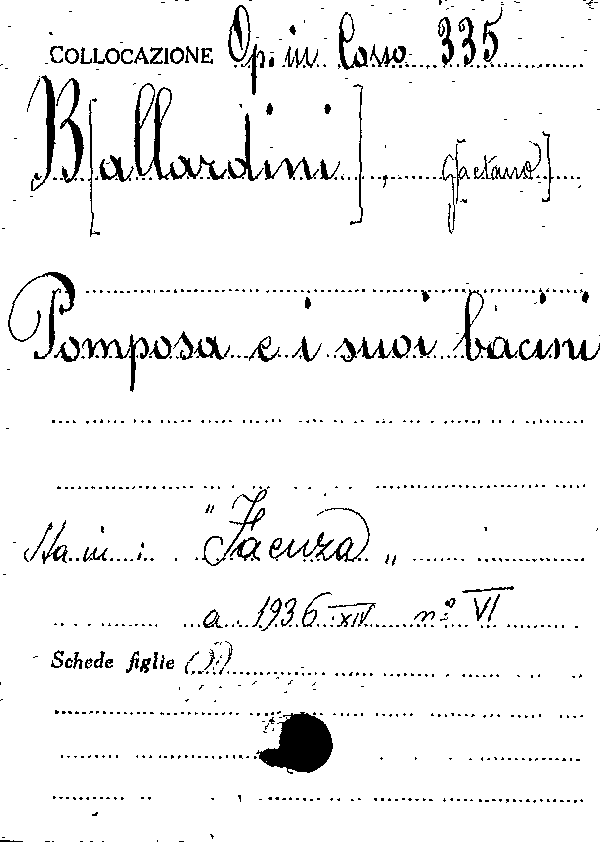 COLLOCAZIONE Op. in Corso 335
B[allardini], G[aetano]
Pomposa e i suoi bacini
Sta in: "Faenza"
a. 1936 XIV n.º VI
Schede figlie